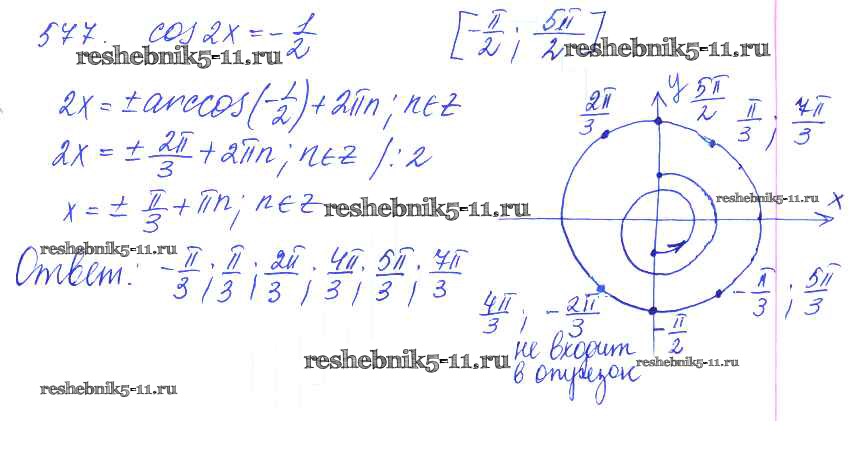 577. cos2x = -1/2 [-π/2; 5π/2]
reshebnik5-11.ru reshebnik5-11.ru
2x = ± arccos(-1/2) + 2πn; n∈Z
2x = ± 2π/3 + 2πn; n∈Z /:2
x = ± π/3 + πn; n∈Z
reshebnik5-11.ru
reshebnik5-11.ru
Ответ: -π/3; π/3; 2π/3; 4π/3; 5π/3; 7π/3
y 5π/2
2π/3
π/3; 7π/3
reshebnik5-11.ru
x
-π/3; 5π/3
4π/3; -2π/3
-π/2
не входит
в отрезок
reshebnik5-11.ru
reshebnik5-11.ru
reshebnik5-11.ru